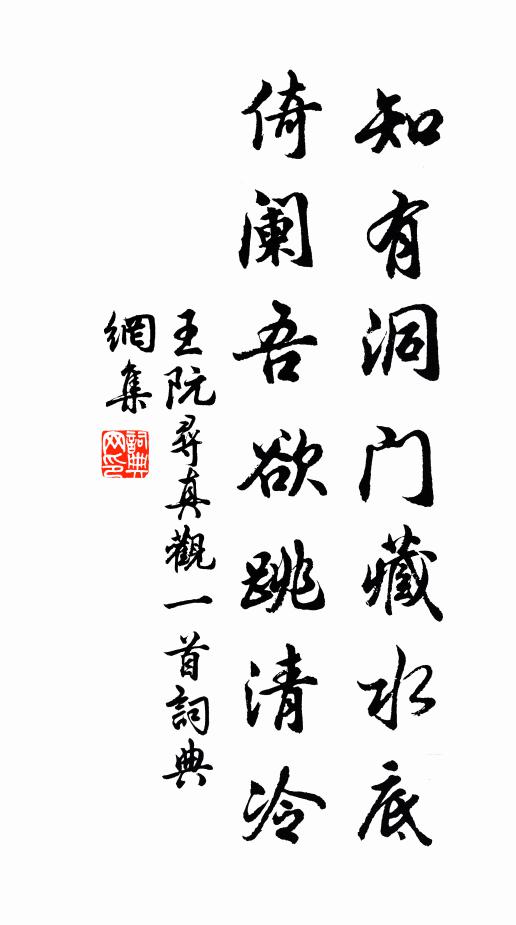 知有洞门藏水底
倚阑吾欲跳清冷
王阮尋真觀一首詞典
網集
詞典网印